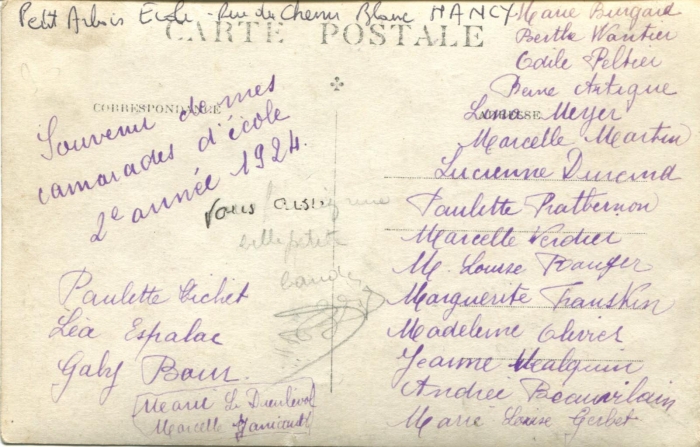 Petit Arbois École - Rue du Chemin Blanc NANCY
CARTE POSTALE
CORRESPONDANCE
ADRESSE
Souvenir de mes
camarades d'école
2e année 1924.
vous aussi
belle petite
bande
Paulette Cichet
Léa Espalac
Gaby Bour
Marie Le
Marcelle
Marie Burgard
Berthe Wantier
Odile Peltier
Artigue
Meyer
Marcelle Martin
Lucienne Durand
Paulette Pratbernon
Marcelle Verdier
M. Louise
Marguerite Transkin
Madeleine Olivier
Jeanne Mealquin
Andrée Beauvilain
Marie Louise Gerbet